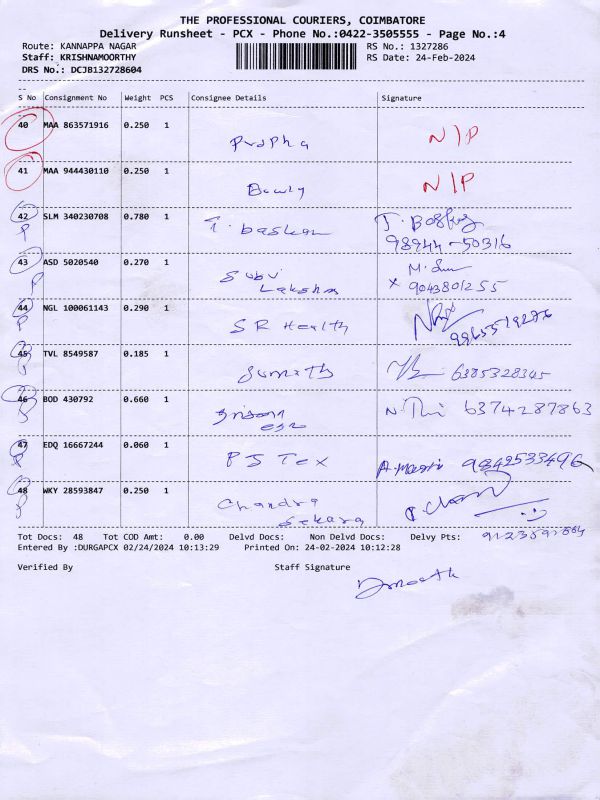 THE PROFESSIONAL COURIERS, COIMBATORE
Delivery Runsheet - PCX - Phone No.:0422-3505555 - Page No.:4
Route: KANNAPPA NAGAR
RS No.: 1327286
Staff: KRISHNAMOORTHY
RS Date: 24-Feb-2024
DRS No.: DCJB132728604
S No Consignment No Weight PCS Consignee Details Signature
40 MAA 863571916 0.250 1 Prapha N/P
41 MAA 944430110 0.250 1 N/P
42 SLM 340230708 0.780 1 T. baskan
P 98944-50316
43 ASD 5020540 0.270 1 Subu Lakshm
P x 9043801255
44 NGL 100061143 0.290 1 SR Health
P
45 TVL 8549587 0.185 1 6385328345
46 BOD 430792 0.660 1 6374287863
47 EDQ 16667244 0.060 1 PS Tex 9842533496
P
48 WKY 28593847 0.250 1 Chandra Sekara
P
Tot Docs: 48 Tot COD Amt: 0.00 Delvd Docs: Non Delvd Docs: Delvy Pts:
Entered By :DURGAPCX 02/24/2024 10:13:29 Printed On: 24-02-2024 10:12:28
Verified By Staff Signature